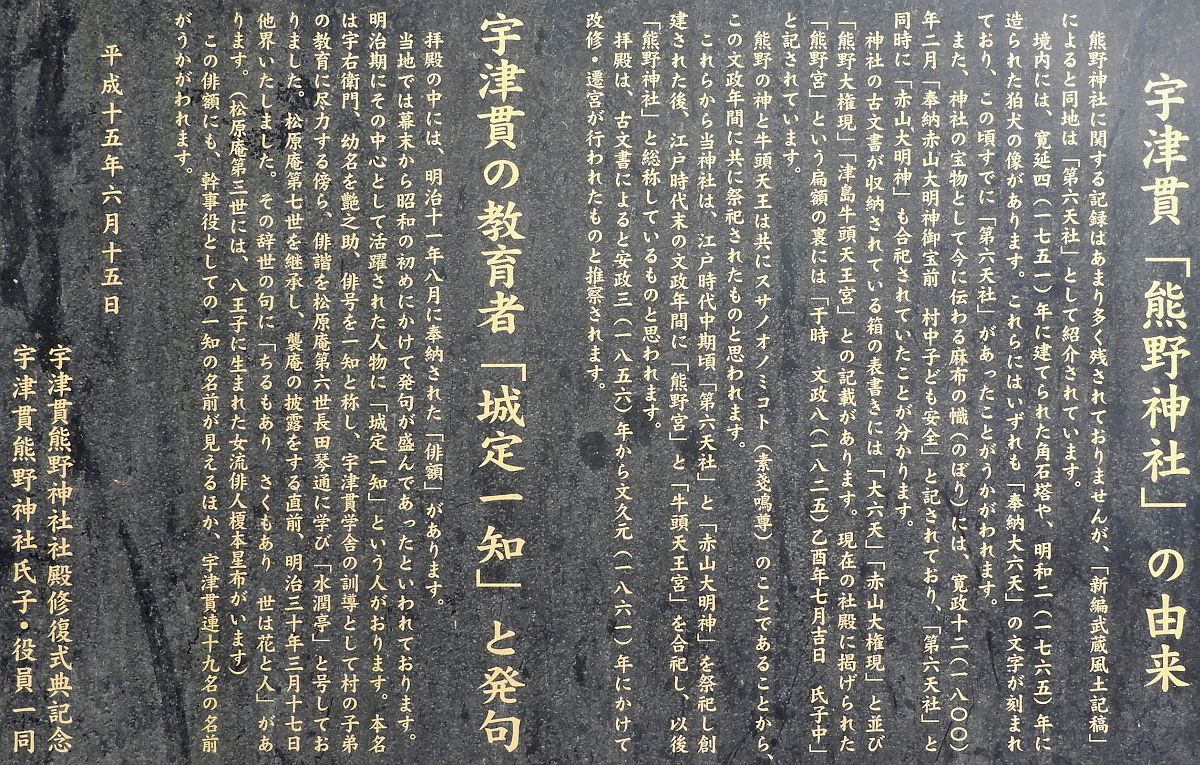 宇津貫「熊野神社」の由来
熊野神社に関する記録はあまり多く残されておりませんが、「新編武蔵風土記稿」
によると同地は「第六天社」として紹介されています。
境内には、寛延四（一七五一）年に建てられた角石塔や、明和二（一七六五）年に
造られた狛犬の像があります。これらにはいずれも「奉納大六天」の文字が刻まれ
ており、この頃すでに「第六天社」があったことがうかがわれます。
また、神社の宝物として今に伝わる麻布の幟（のぼり）には、寛政十二（一八〇〇）
年二月「奉納赤山大明神御宝前　村中子ども安全」と記されており、「第六天社」と
同時に「赤山大明神」も合祀されていたことが分かります。
神社の古文書が収納されている箱の表書きには「大六天」「赤山大権現」と並び
「熊野大権現」「津島牛頭天王宮」との記載があります。現在の社殿に掲げられた
「熊野宮」という扁額の裏には「于時　文政八（一八二五）乙酉年七月吉日　氏子中」
と記されています。
熊野の神と牛頭天王は共にスサノオノミコト（素戔嗚尊）のことであることから、
この文政年間に共に祭祀されたものと思われます。
これらから当神社は、江戸時代中期頃「第六天社」と「赤山大明神」を祭祀し創
建された後、江戸時代末の文政年間に「熊野宮」と「牛頭天王宮」を合祀し、以後
「熊野神社」と総称しているものと思われます。
拝殿は、古文書によると安政三（一八五六）年から文久元（一八六一）年にかけて
改修・遷宮が行われたものと推察されます。
宇津貫の教育者「城定一知」と発句
拝殿の中には、明治十一年八月に奉納された「俳額」があります。
当地では幕末から昭和の初めにかけて発句が盛んであったといわれております。
明治期にその中心として活躍された人物に「城定一知」という人がおります。本名
は宇右衛門、幼名を艶之助、俳号を一知と称し、宇津貫学舎の訓導として村の子弟
の教育に尽力する傍ら、俳諧を松原庵第六世長田琴通に学び「水潤亭」と号してお
りました。松原庵第七世を継承し、襲庵の披露をする直前、明治三十年三月十七日
他界いたしました。その辞世の句に「ちるもあり　さくもあり　世は花と人」があ
ります。（松原庵第三世には、八王子に生まれた女流俳人榎本星布がいます）
この俳額にも、幹事役としての一知の名前が見えるほか、宇津貫連十九名の名前
がうかがわれます。
平成十五年六月十五日
宇津貫熊野神社社殿修復式典記念
宇津貫熊野神社氏子・役員一同